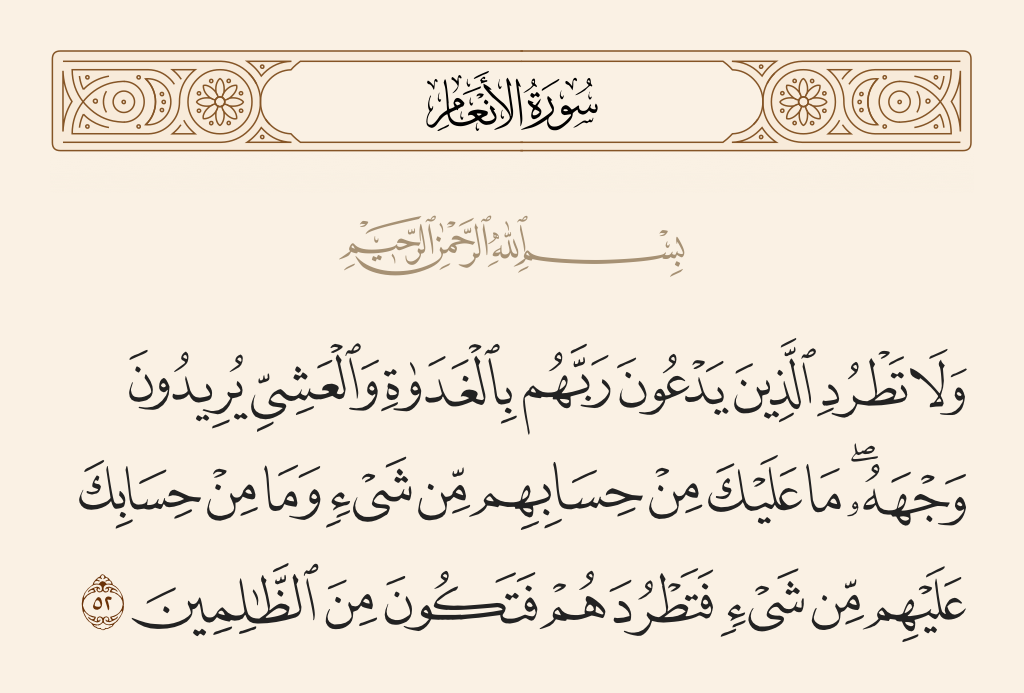 سُورَةُ الأَنْعَامِ
بِسْمِ ٱللَّهِ ٱلرَّحْمَٰنِ ٱلرَّحِيمِ
وَلَا تَطْرُدِ ٱلَّذِينَ يَدْعُونَ رَبَّهُم بِٱلْغَدَوٰةِ وَٱلْعَشِىِّ يُرِيدُونَ
وَجْهَهُۥ ۖ مَا عَلَيْكَ مِنْ حِسَابِهِم مِّن شَىْءٍ وَمَا مِنْ حِسَابِكَ
عَلَيْهِم مِّن شَىْءٍ فَتَطْرُدَهُمْ فَتَكُونَ مِنَ ٱلظَّٰلِمِينَ ٥٢